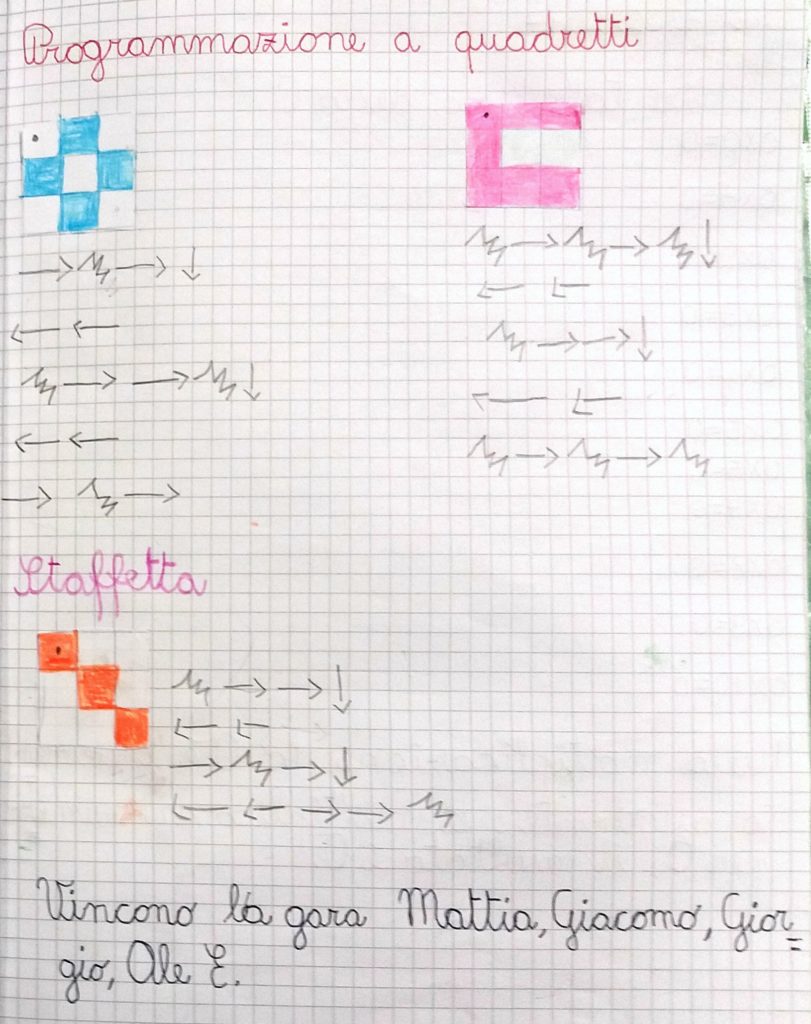 Programmazione a quadretti
Staffetta
Vincono la gara Mattia, Giacomo, Gior=
gio, Ale E.